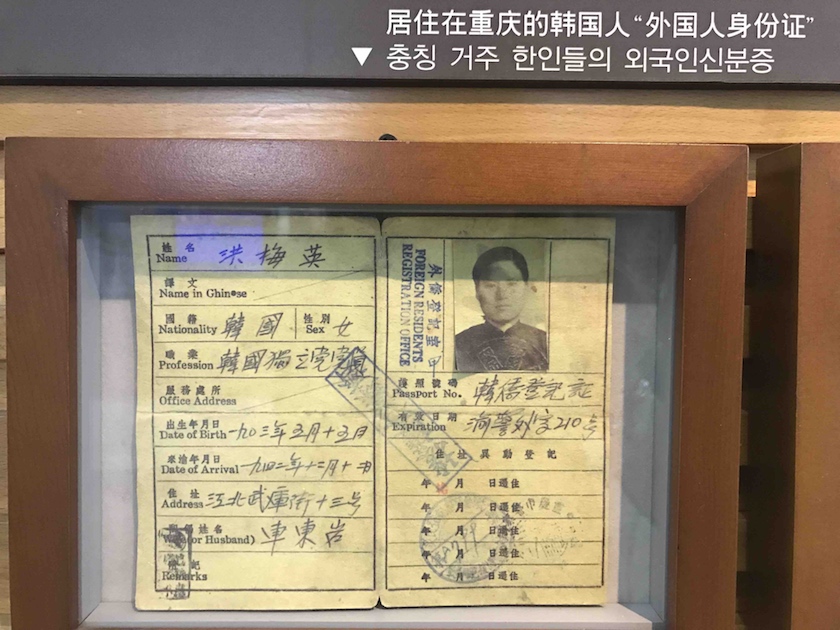 居住在重庆的韩国人“外国人身份证”
▼ 충칭 거주 한인들의 외국인신분증
姓名
Name 洪梅英
譯文
Name in Chinese
國籍 性別
Nationality 韓國 Sex 女
職業
Profession 韓國獨立党党員
服務處所
Office Address
出生年月日
Date of Birth 一九〇三年五月十五日
來渝年月日
Date of Arrival 一九四二年十二月十一日
住址
Address 江北武庫街十三号
姓名
(or Husband) 車東岩
記
Remarks
外僑登記室
FOREIGN RESIDENTS
REGISTRATION OFFICE
甲
護照號碼
Passport No. 韓僑登記証
有效日期
Expiration 渝警外字210号
住址異動登記
年 月 日遷住
年 月 日遷住
年 月 日遷住
年 月 日遷住
年 月 日遷住